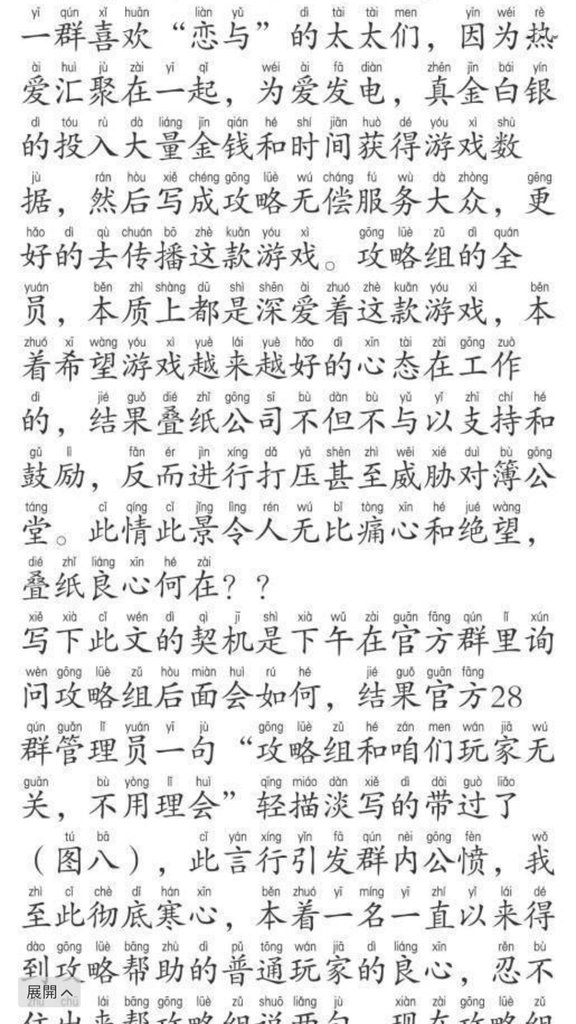 yī qún xǐ huān liàn yǔ dì tài tài men yīn wéi rè
一群喜欢“恋与”的太太们，因为热
ài huì jù zài yī qǐ wéi ài fā diàn zhēn jīn bái yín
爱汇聚在一起，为爱发电，真金白银
dì tóu rù dà liáng jīn qián hé shí jiān huò dé yóu xì shù
的投入大量金钱和时间获得游戏数
jù rán hòu xiě chéng gōng lüè wú cháng fú wù dà zhòng gēng
据，然后写成攻略无偿服务大众，更
hǎo dì qù chuán bō zhè kuǎn yóu xì gōng lüè zǔ dì quán
好的去传播这款游戏。攻略组的全
yuán běn zhì shàng dū shì shēn ài zhuó zhè kuǎn yóu xì běn
员，本质上都是深爱着这款游戏，本
zhuó xī wàng yóu xì yuè lái yuè hǎo dì xīn tài zài gōng zuò
着希望游戏越来越好的心态在工作
dì jié guǒ dié zhǐ gōng sī bù dàn bù yǔ yǐ zhī chí hé
的，结果叠纸公司不但不与以支持和
gǔ lì fǎn ér jìn xíng dǎ yā shèn zhì wēi xié duì bù gōng
鼓励，反而进行打压甚至威胁对簿公
táng cǐ qíng cǐ jǐng lìng rén wú bǐ tòng xīn hé jué wàng
堂。此情此景令人无比痛心和绝望，
dié zhǐ liáng xīn hé zài
叠纸良心何在？？
xiě xià cǐ wén dì qì jī shì xià wǔ zài guān fāng qún lǐ xún
写下此文的契机是下午在官方群里询
wèn gōng lüè zǔ hòu miàn huì rú hé jié guǒ guān fāng
问攻略组后面会如何，结果官方28
qún guǎn lǐ yuán yī jù gōng lüè zǔ hé zán men wán jiā wú
群管理员一句“攻略组和咱们玩家无
guān bù yòng lǐ huì qīng miáo dàn xiě dì dài guò liǎo
关，不用理会”轻描淡写的带过了
tú bā cǐ yán xíng yǐn fā qún nèi gōng fèn wǒ
（图八），此言行引发群内公愤，我
zhì cǐ chè dǐ hán xīn běn zhuó yī míng yī zhí yǐ lái dé
至此彻底寒心，本着一名一直以来得
dào gōng lüè bāng zhù dì pǔ tōng wán jiā dì liáng xīn rěn bù
到攻略帮助的普通玩家的良心，忍不
lái bāng gōng lüè zǔ shuō liǎng jù xiàn zài gōng lüè zǔ
来帮攻略组说两句，现在攻略组
展開